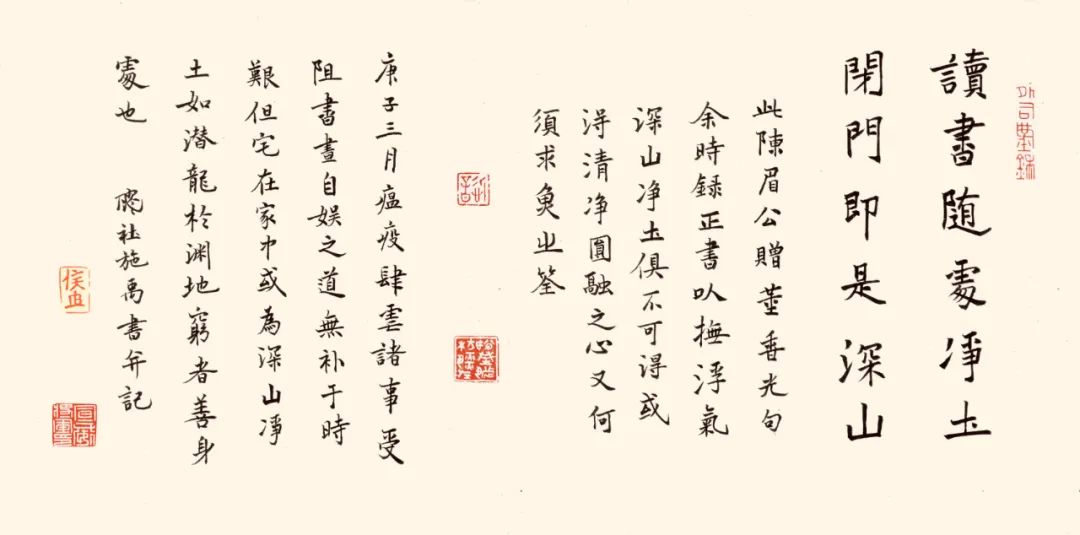 讀書随處淨土
閉門即是深山
此陳眉公贈董香光句
余時録正書以撫浮氣
深山净土俱不可得或
淂清净圓融之心又何
須求魚之筌
庚子三月瘟疫肆雲諸事受
阻書畫自娱之道無补于時
艱但宅在家中或為深山淨
土如潜龍於渊地窮者善身
處也
社施禹書并記